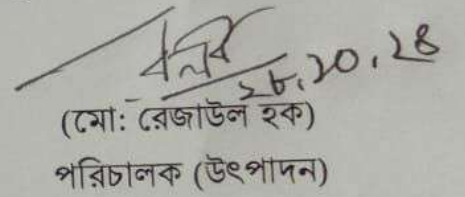 ২৮.১০.২৪
(মো: রেজাউল হক)
পরিচালক (উৎপাদন)